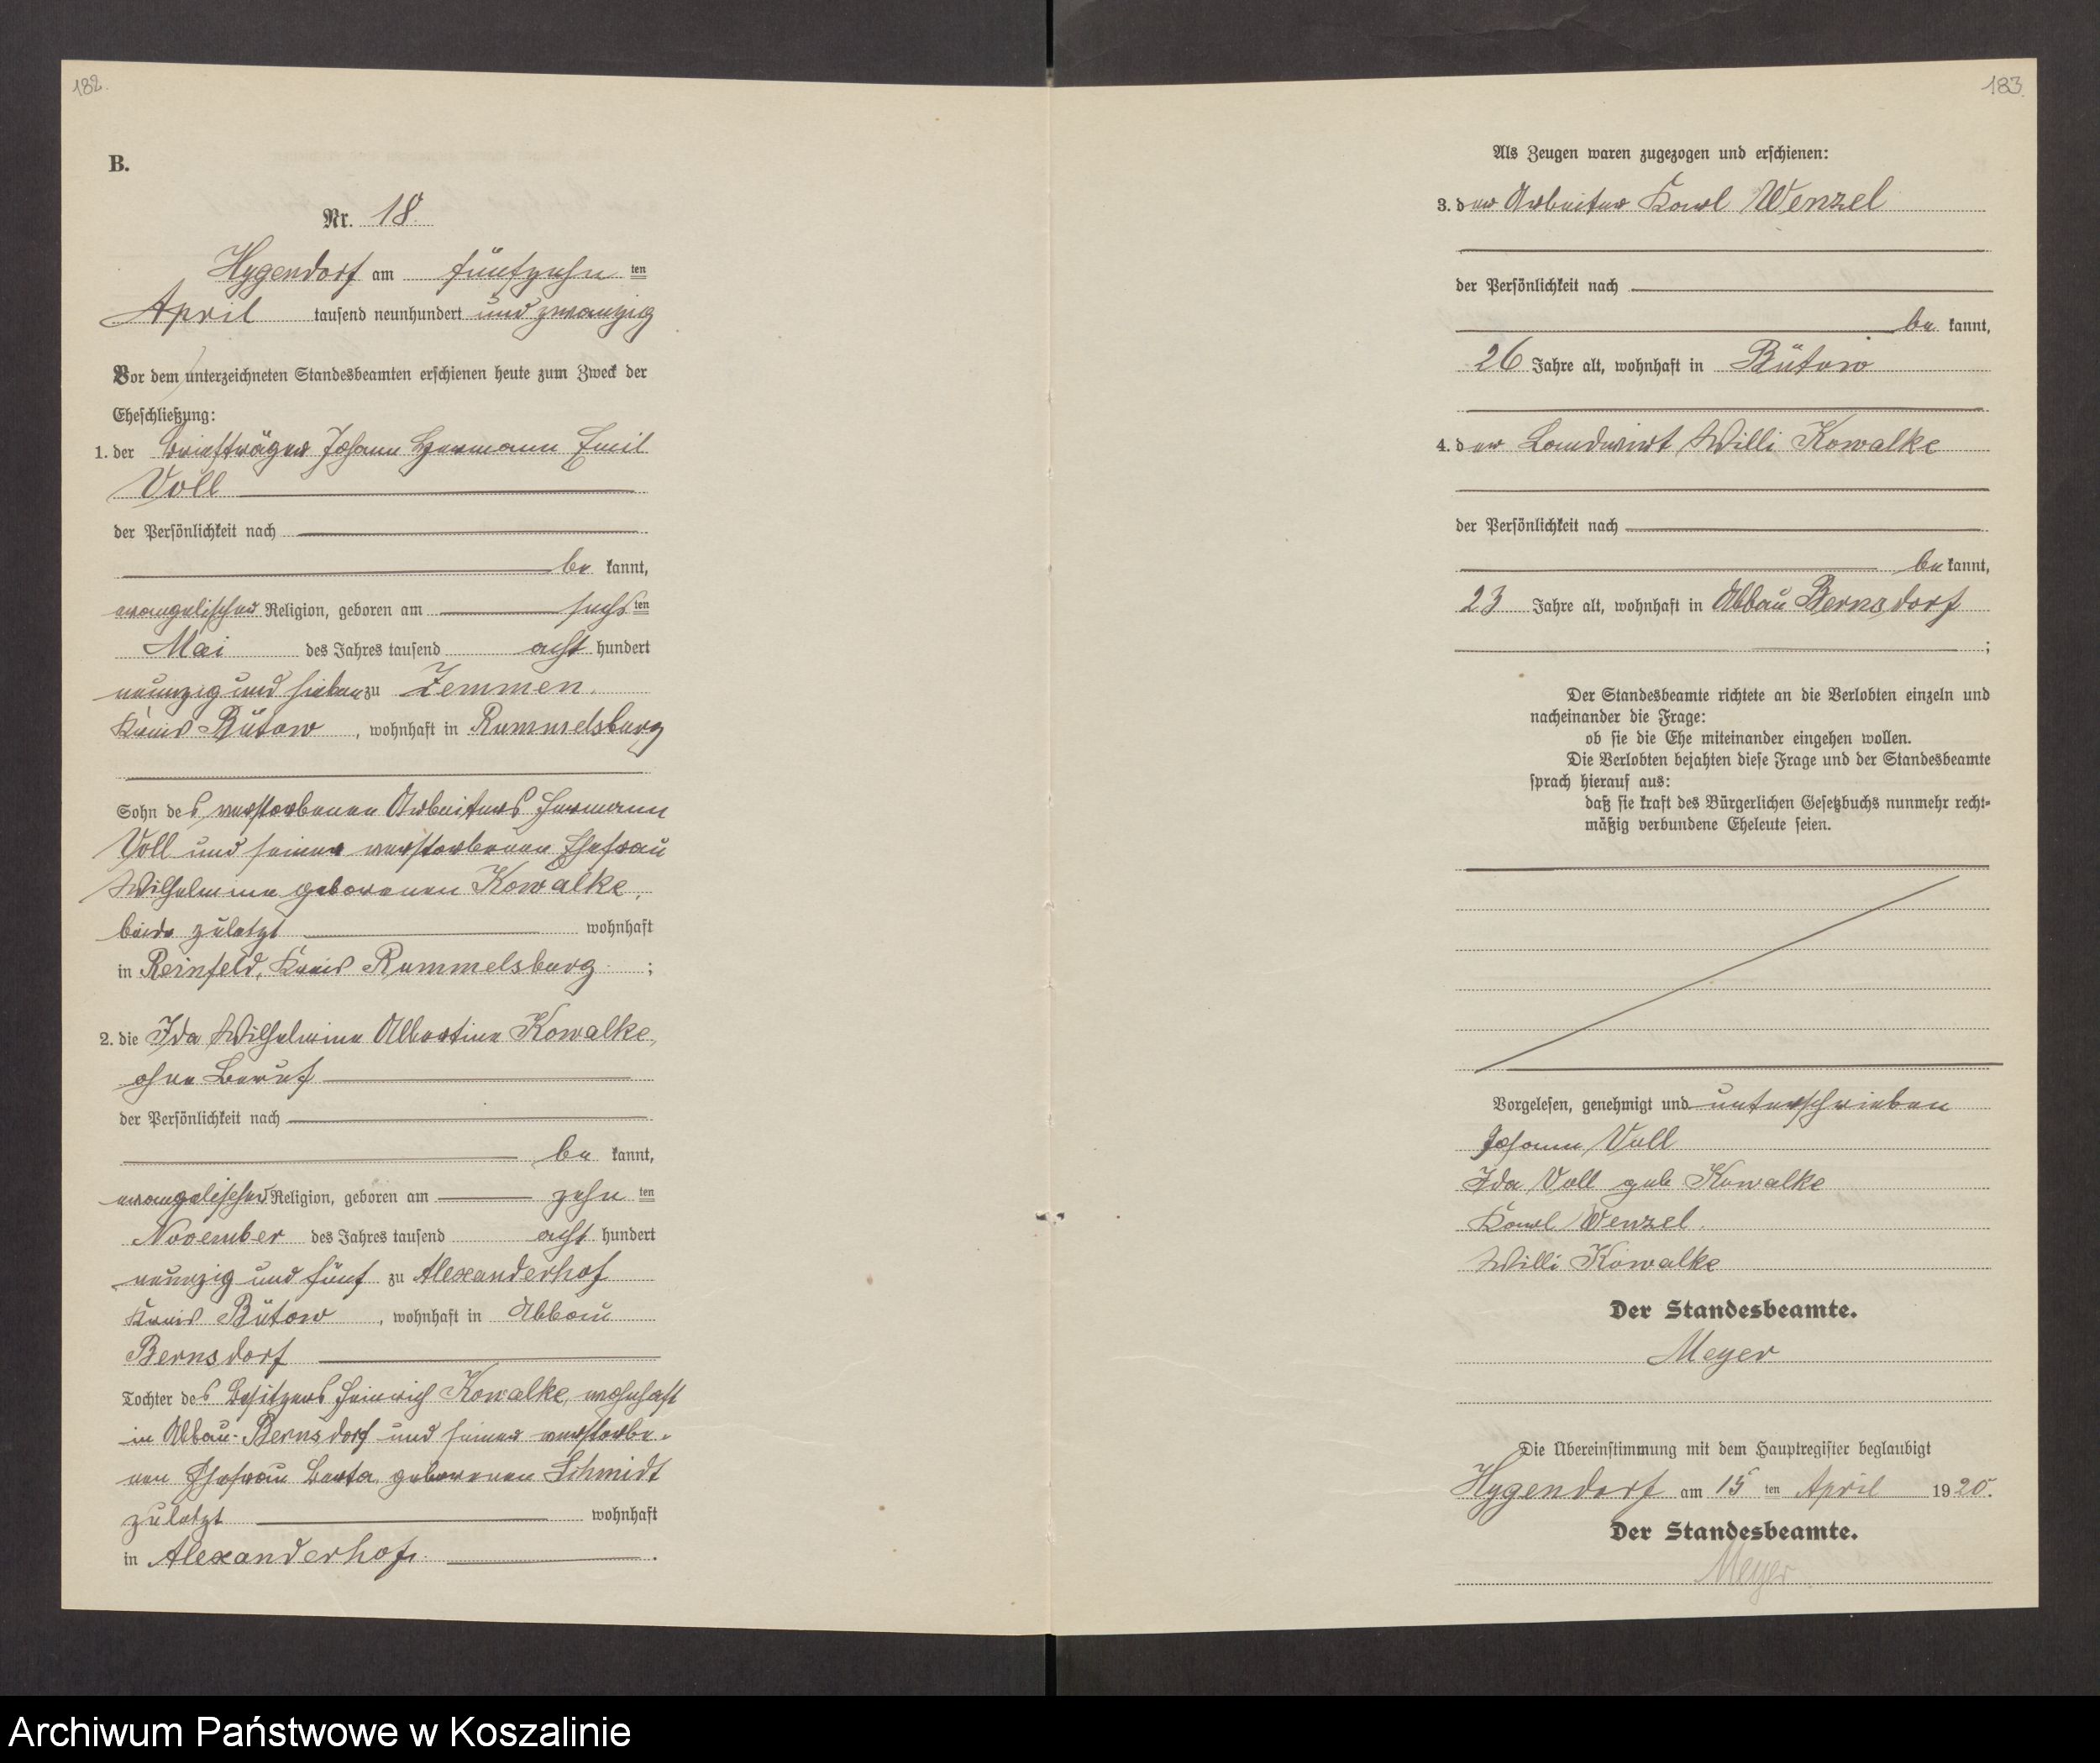 182.
B.
Nr. 18.
Hygendorf am fünfzehn ten
April tausend neunhundert und zwanzig
Vor dem unterzeichneten Standesbeamten erschienen heute zum Zweck der
Eheschließung:
1. der Briefträger Johann Hermann Emil
Voll
der Persönlichkeit nach
be kannt,
evangelischer Religion, geboren am sechs ten
Mai des Jahres tausend acht hundert
neunzig und sieben zu Zemmen.
Kreis Bütow, wohnhaft in Rummelsburg
Sohn des verstorbenen Arbeiters Hermann
Voll und seiner verstorbenen Ehefrau
Wilhelmine geborenen Kowalke,
beide zuletzt wohnhaft
in Reinfeld, Kreis Rummelsburg;
2. die Ida Wilhelmine Albertine Kowalke,
ohne Beruf
der Persönlichkeit nach
be kannt,
evangelischer Religion, geboren am zehn ten
November des Jahres tausend acht hundert
neunzig und fünf zu Alexanderhof
Kreis Bütow, wohnhaft in Abbau
Bernsdorf
Tochter des Besitzers Heinrich Kowalke, wohnhaft
in Abbau-Bernsdorf und seiner verstorbe-
nen Ehefrau Berta geborenen Schmidt
zuletzt wohnhaft
in Alexanderhof.
183.
Als Zeugen waren zugezogen und erschienen:
3. der Arbeiter Karl Wenzel
der Persönlichkeit nach
be kannt,
26 Jahre alt, wohnhaft in Bütow
4. der Landwirt Willi Kowalke
der Persönlichkeit nach
be kannt,
23 Jahre alt, wohnhaft in Abbau Bernsdorf
;
Der Standesbeamte richtete an die Verlobten einzeln und
nacheinander die Frage:
ob sie die Ehe miteinander eingehen wollen.
Die Verlobten bejahten diese Frage und der Standesbeamte
sprach hierauf aus:
daß sie kraft des Bürgerlichen Gesetzbuchs nunmehr recht-
mäßig verbundene Eheleute seien.
Vorgelesen, genehmigt und unterschrieben
Johann Voll
Ida Voll geb Kowalke
Karl Wenzel.
Willi Kowalke
Der Standesbeamte.
Meyer
Die Übereinstimmung mit dem Hauptregister beglaubigt
Hygendorf am 15 ten April 1920.
Der Standesbeamte.
Meyer
Archiwum Państwowe w Koszalinie